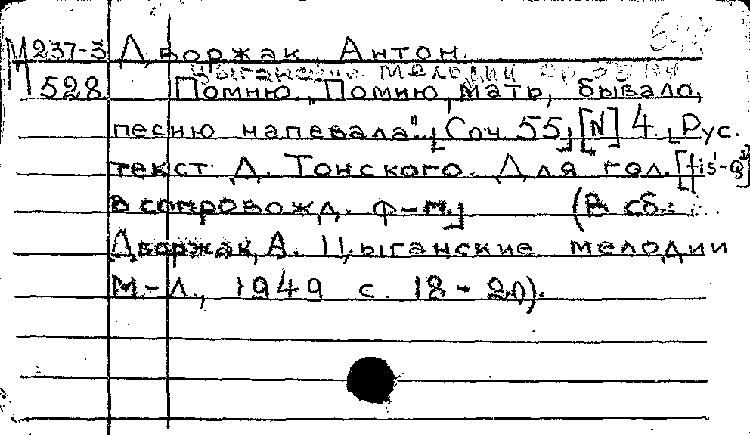 М237-3 Дворжак, Антон.
Цыганские мелодии ор. 55 №4
П528 Помню. „Помню, мать, бывало,
песню напевала". [Соч. 55] [N] 4. [Рус.
текст Д. Тонского. Для гол. [fis¹-g²]
в сопровожд. ф-п.] (В сб.:
Дворжак, А. Цыганские мелодии
М.-Л., 1949 с. 18-20).